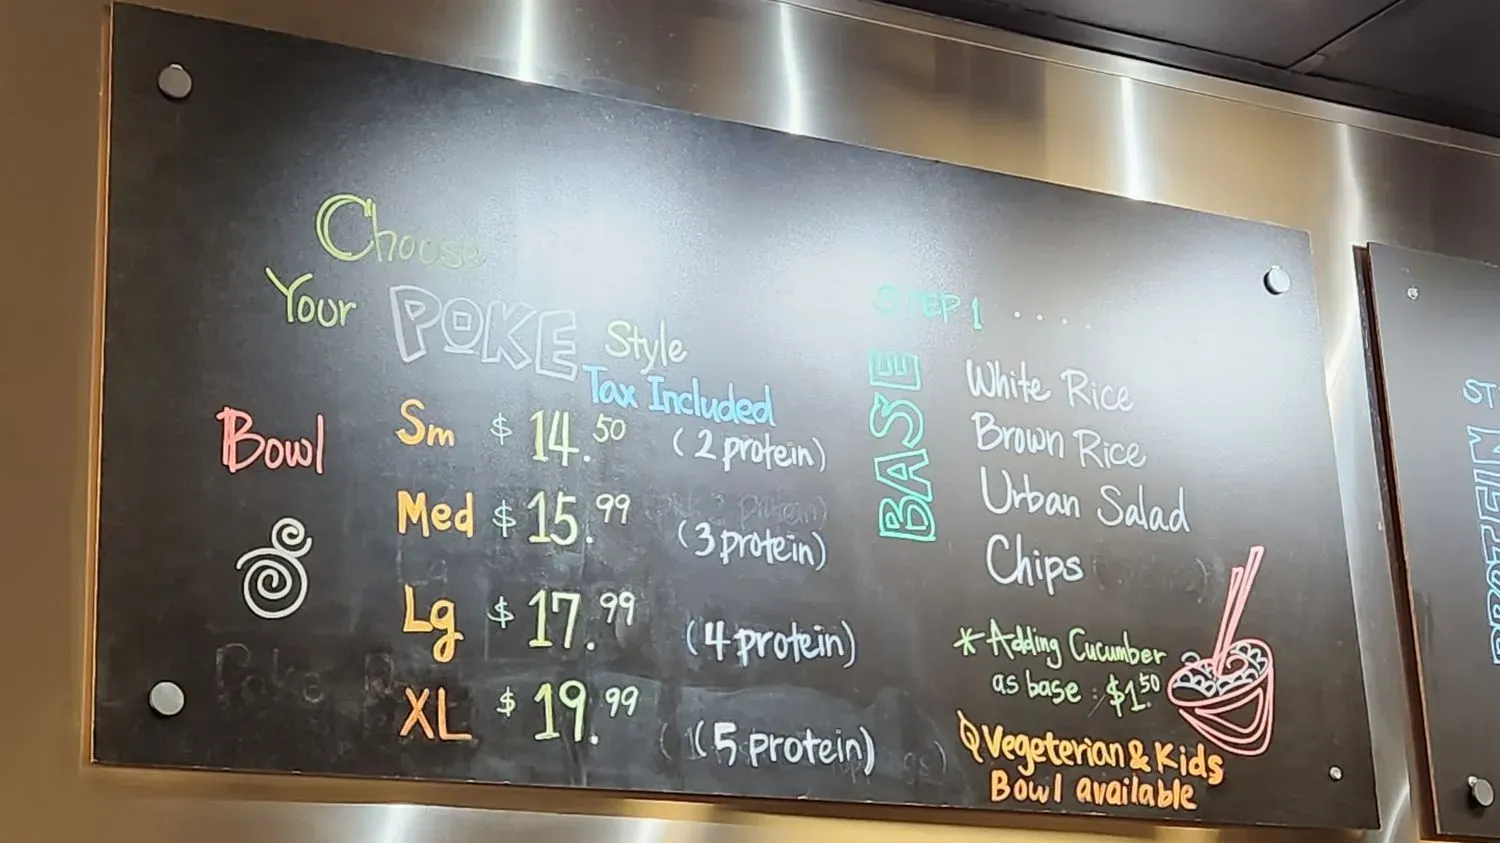 Choose
Your POKE Style
Tax Included
Bowl
Sm $14.50 (2 protein)
Med $15.99 (3 protein)
Lg $17.99 (4 protein)
XL $19.99 (5 protein)
STEP 1 . . . . .
BASE
White Rice
Brown Rice
Urban Salad
Chips
*Adding Cucumber
as base : $1.50
Vegeterian & Kids
Bowl available
ST
PROTEIN